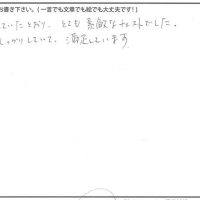 お書き下さい。(一言でも文章でも絵でも大丈夫です!)
ていたとおり、とても素敵なテイストでした。
しっかりしていて、満足しています